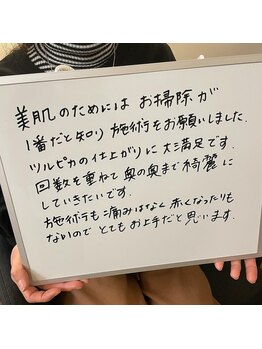 美肌のためには お掃除が
1番だと知り 施術をお願いしました。
ツルピカの仕上がりに大満足です。
回数を重ねて奥の奥まで綺麗に
していきたいです。
施術も痛みはなく 赤くなったりも
ないので とてもお上手だと思います。